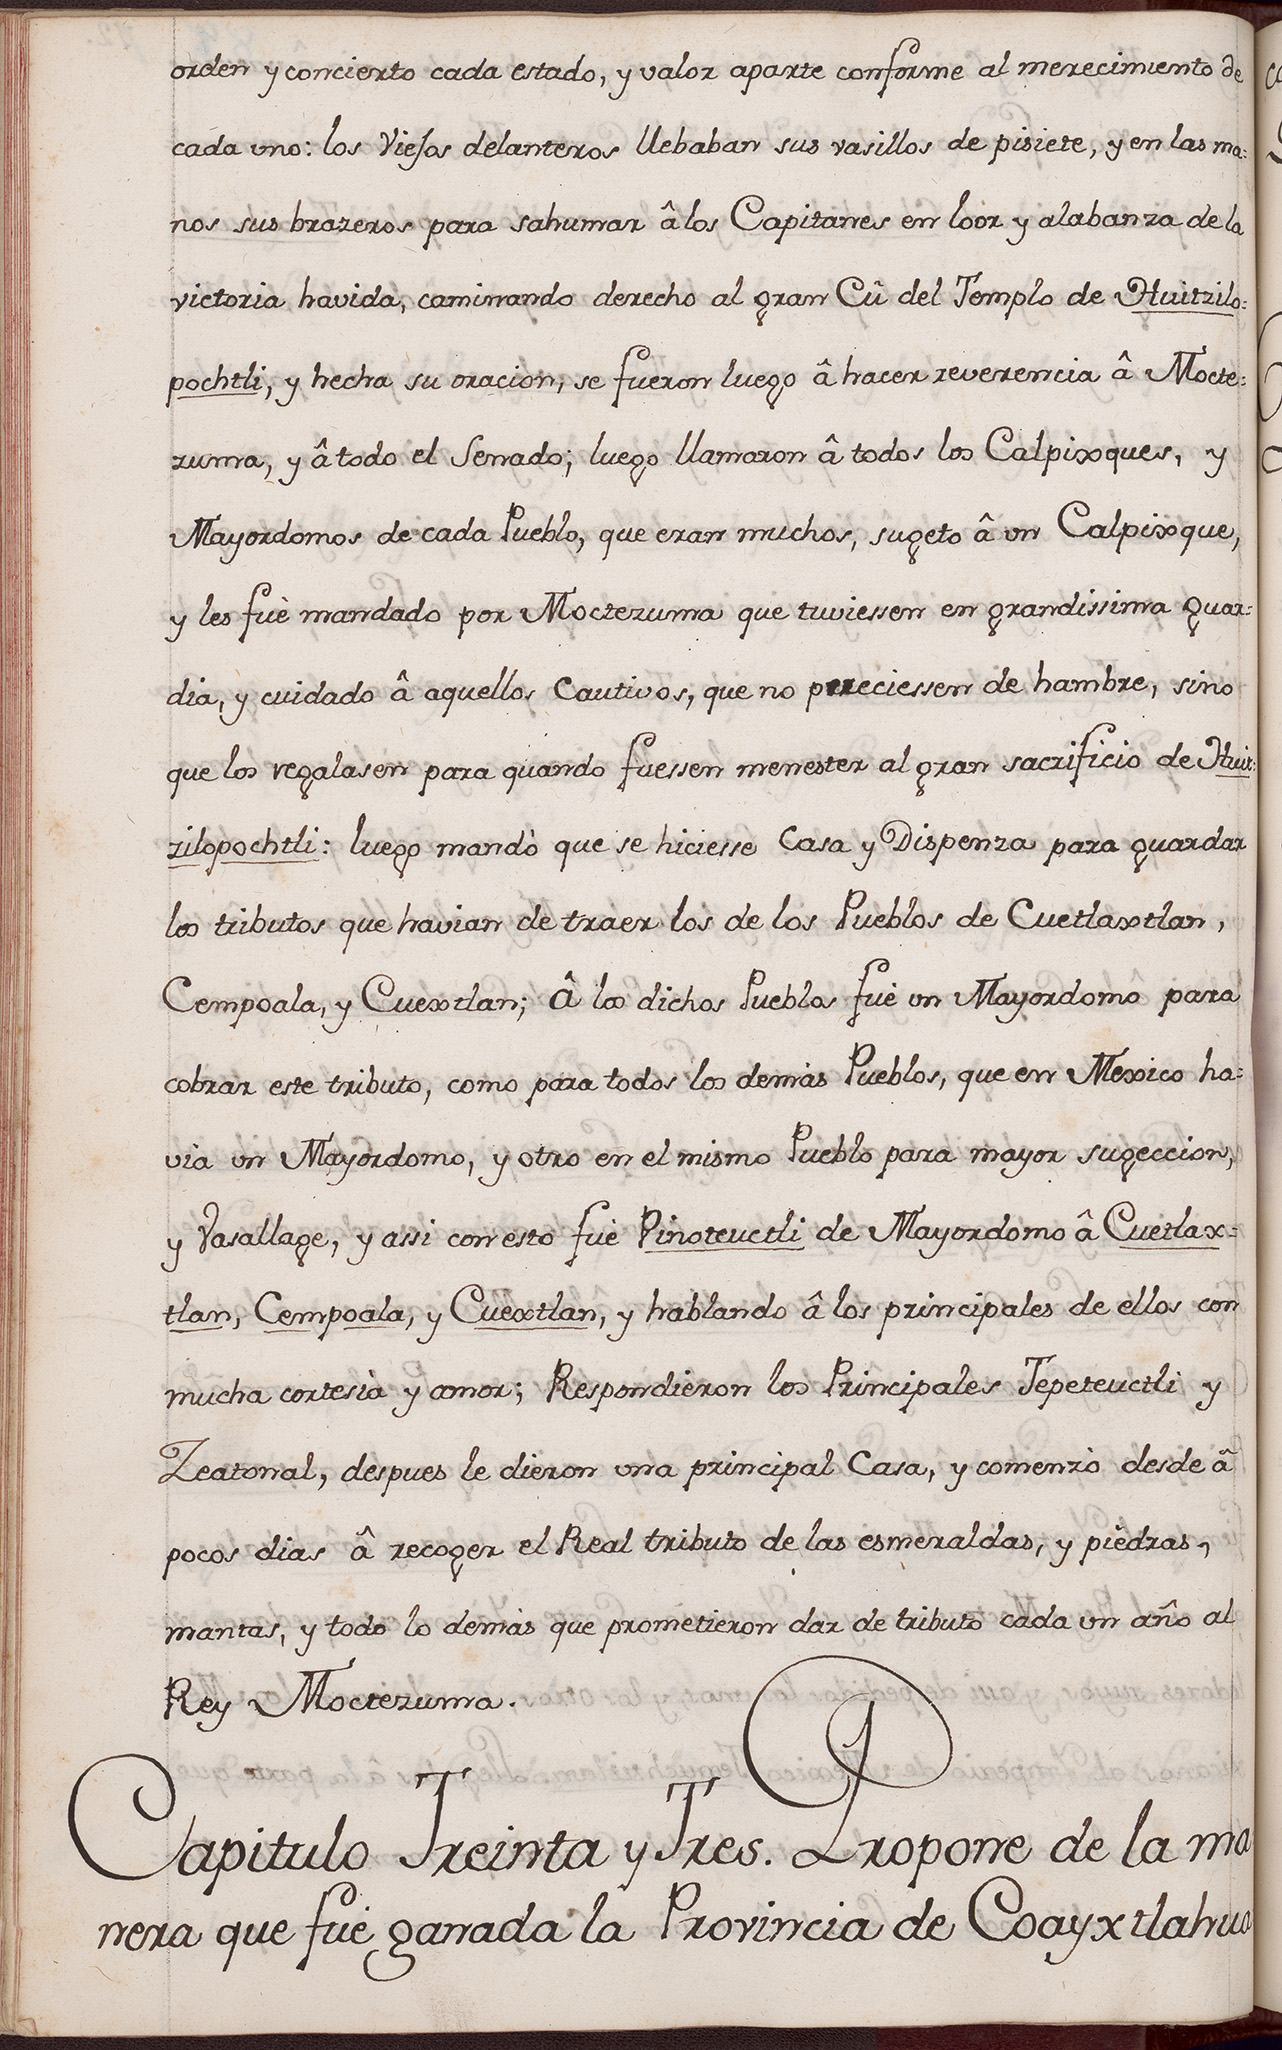 orden y concierto cada estado, y valor aparte conforme al merecimiento de
cada vno: los Viejos delanteros llebaban sus vasillos de pisiete, y en las ma=
nos sus brazeros para sahumar â los Capitanes en loor y alabanza de la
victoria havida, caminando derecho al gran Cû del Templo de Huitzilo=
pochtli, y hecha su oracion, se fueron luego â hacer reverencia â Mocte=
zuma, y â todo el Senado; luego llamaron â todos los Calpixques, y
Mayordomos de cada Pueblo, que eran muchos, sugeto â vn Calpixque,
y les fuè mandado por Moctezuma que tuviessen en grandissima guar=
dia, y cuidado â aquellos Cautivos, que no pereciessen de hambre, sino
que los regalasen para quando fuessen menester al gran sacrificio de Huit=
zilopochtli: luego mandò que se hiciesse Casa y Dispenza para guardar
los tributos que havian de traer los de los Pueblos de Cuetlaxtlan,
Cempoala, y Cuextlan; â los dichos Pueblos fuè vn Mayordomo para
cobrar este tributo, como para todos los demàs Pueblos, que en Mexico ha=
via vn Mayordomo, y otro en el mismo Pueblo para mayor sugeccion,
y Vasallage, y assi con esto fuè Pinoteuctli de Mayordomo â Cuetlax=
tlan, Cempoala, y Cuextlan, y hablando â los principales de ellos con
mucha cortesìa y amor; Respondieron los Principales Tepeteuctli y
Zeatonal, despues le dieron vna principal Casa, y comenzò desde â
pocos dias â recoger el Real tributo de las esmeraldas, y piedras,
mantas, y todo lo demàs que prometieron dar de tributo cada vn año al
Rey Moctezuma.
Capitulo Treinta y Tres. Propone de la ma
nera que fuè ganada la Provincia de Coayxtlahua